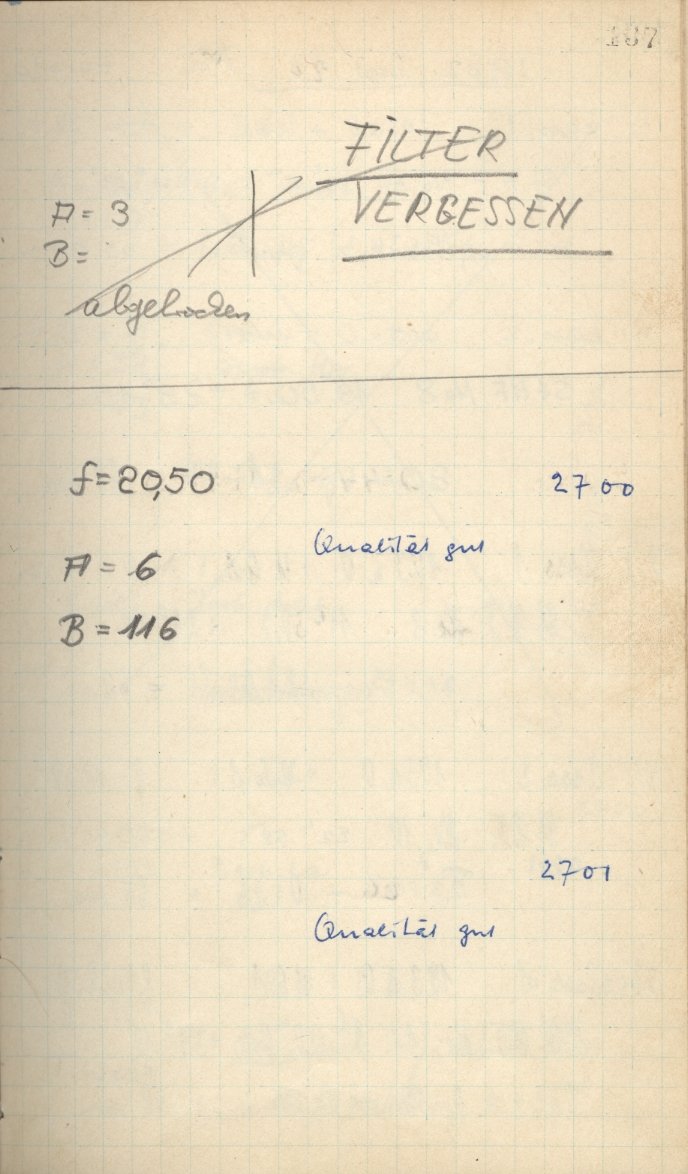 167
FILTER
A = 3
VERGESSEN
B =
abgebrochen
f = 20,50
2700
Qualität gut
A = 6
B = 116
2701
Qualität gut